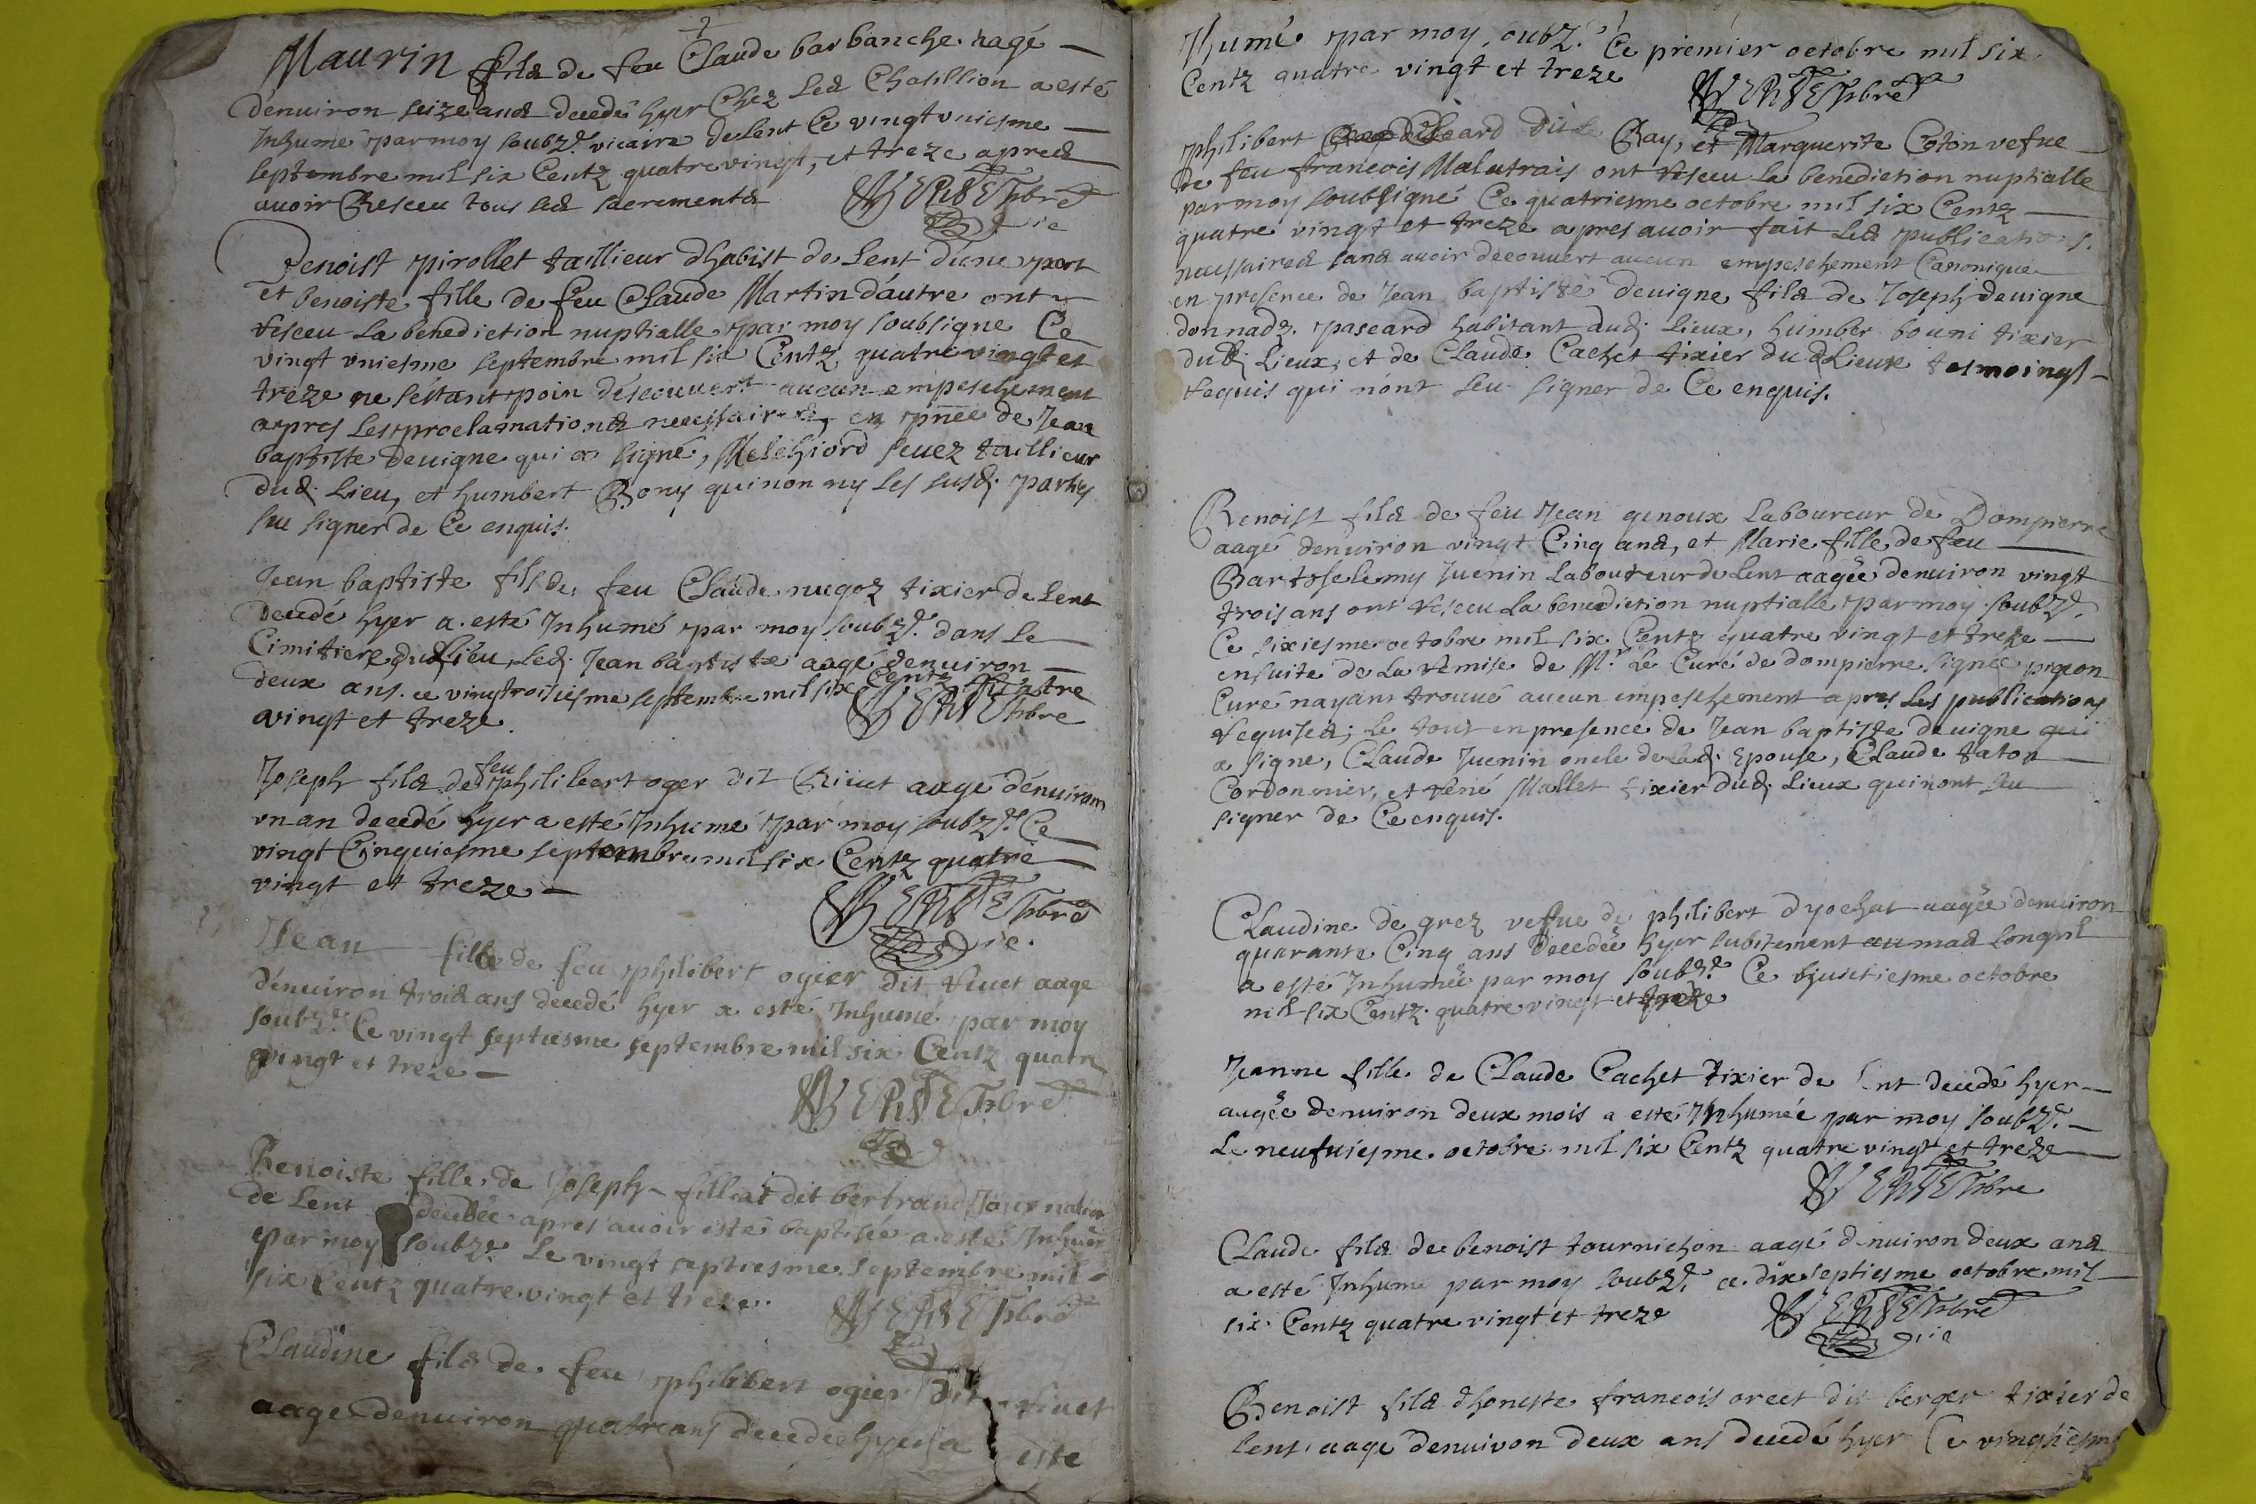 Maurin fils de feu Claude barbanche aagé
denuiron seize ans decedé hyer Chez led Chatillion a esté
Inhumé par moy soubz.é vicaire de lent Ce vingt vniesme
septembre mil six Centz quatre vingt, et treze apres
auoir Resceu tous les sacrements
Benoist pirollet taillieur dhabist de Lent dune part
et benoiste fille de feu Claude Martin dautre ont
resceu La benediction nuptialle par moy soubsigne Ce
vingt vniesme septembre mil six Centz quatre vingt et
treze ne sestant poin descouuert aucun empeschement
apres Les proclamations necessaires, en pnce de Jean
baptiste deuigne qui a signé, Melchiord seuez taillieur
dud. Lieu, et humbert Bony quinon ny les susd. parties
sceu signer de Ce enquis.
Jean baptiste fils de feu Claude nugoz tixier de Lent
decedé hyer a esté Inhumé par moy soubz.é dans le
Cimitiere dud Lieu, led. Jean baptiste aagé denuiron
deux ans. ce vingtroisiesme septembre mil six Centz quatre
vingt et treze.
Joseph fils de feu philibert oger dit Riuet aagé denuiron
vn an decedé hyer a esté Inhumé par moy soubz.é Ce
vingt Cinquiesme septembre mil six Centz quatre
vingt et treze
Jean fille de feu philibert ogier dit Riuet aage
denuiron trois ans decedé hyer a esté Inhumé par moy
soubz.é Ce vingt septiesme septembre mil six Centz quatre
vingt et treze
Benoiste fille de Joseph filliat dit bertrand Journalier
de Lent decedée apres auoir esté baptisée a esté Inhumée
par moy soubz.é Le vingt septiesme septembre mil
six Centz quatre vingt et treze.
Claudine fils de feu philibert ogier dit riuet
aage denuiron quatre ans decedée hyer a esté
Jhumé par moy soubz.é Ce premier octobre mil six
Centz quatre vingt et treze
philibert dit Ray, et Marguerite Coton vefue
de feu francois Malutrais ont resceu La benediction nuptialle
par moy soubsigné Ce quatriesme octobre mil six Centz
quatre vingt et treze apres auoir fait Les publications
necessaires sans auoir decouuert aucun empeschement Canonique
en presence de Jean baptiste deuigne fils de Joseph deuigne
donnadz. paseard habitant dud. Lieux, humber bouni tixier
dud. Lieux, et de Claude Cachet tixier du d Lieux tesmoingt
requis qui nont seu signer de Ce enquis.
Benoist fils de feu Jean genoux Laboureur de Dompierre
aagé denuiron vingt Cinq ans, et Marie fille de feu
Bartholemy Juenin Laboureur de Lent aagée denuiron vingt
trois ans ont resceu La benediction nuptialle par moy soubz.é
Ce sixiesme octobre mil six Centz quatre vingt et treze
ensuite de La remise de Mr. Le Curé de dompierre signée pigeon
Curé nayant trouué aucun empeschement apres Les publications
requises; Le tout en presence de Jean baptiste deuigne qui
a signe, Claude Juenin oncle de lad. Epouse, Claude taton
Cordonnier, et réné Mallet tixier dud. Lieux quinont seu
signer de Ce enquis.
Claudine de grez vefue de philibert dyochat aagée denuiron
quarante Cinq ans decedée hyer subitement
a esté Inhumée par moy soubz.é Ce octobre
mil six Centz quatre vingt et treze
Jeanne fille de Claude Cachet tixier de Lent decedé hyer
aagée denuiron deux mois a esté Inhumée par moy soubz.é
Le neufuiesme octobre mil six Centz quatre vingt et treze
Claude fils de benoist tournichon aagé denuiron deux ans
a esté Inhumé par moy soubz.é ce dix septiesme octobre mil
six Centz quatre vingt et treze
Benoist fils dhoneste francois orcet dit berger tixier de
lent aagé denuiron deux ans decedé hyer Ce vingtiesme